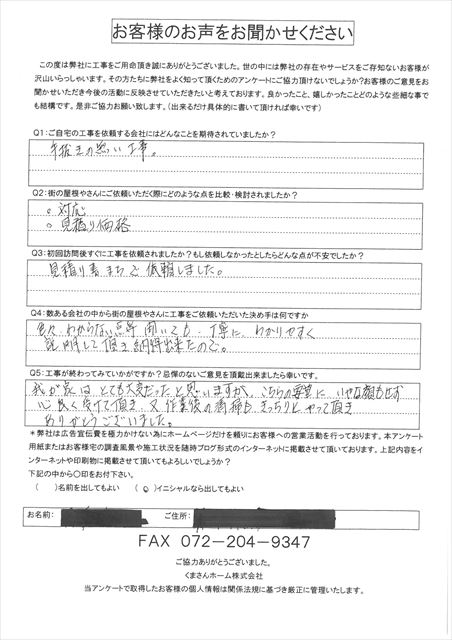 お客様のお声をお聞かせください
この度は弊社に工事をご用命頂き誠にありがとうございました。世の中には弊社の存在やサービスをご存知ないお客様が
沢山いらっしゃいます。その方たちに弊社をよく知って頂くためのアンケートにご協力頂けないでしょうか?お客様のご意見をお
聞かせいただき今後の活動に反映させていただきたいと考えております。良かったこと、嬉しかったことどのような些細な事で
も結構です。是非ご協力お願い致します。(出来るだけ具体的に書いて頂ければ幸いです)
Q1:ご自宅の工事を依頼する会社にはどんなことを期待されていましたか?
手抜きの無い工事。
Q2:街の屋根やさんにご依頼いただく際にどのような点を比較・検討されましたか?
○対応
○見積り価格
Q3:初回訪問後すぐに工事を依頼されましたか?もし依頼しなかったとしたらどんな点が不安でしたか?
見積り書まちで依頼しました。
Q4:数ある会社の中から街の屋根やさんに工事をご依頼いただいた決め手は何ですか
色々わからない点等聞いても、丁寧にわかりやすく
説明して頂き納得出来たので。
Q5:工事が終わってみていかがですか?忌憚のないご意見を頂戴出来ましたら幸いです。
我が家はとても大変だったと思いますが、こちらの要望にいやな顔もせず
心良く受けて頂き、又作業後の清掃もきっちりとやって頂き
ありがとうございました。
*弊社は広告宣伝費を極力かけない為にホームページだけを頼りにお客様への営業活動を行っております。本アンケート
用紙またはお客様宅の調査風景や施工状況を随時ブログ形式のインターネットに掲載させて頂いております。上記内容をイ
ンターネットや印刷物に掲載させて頂いてもよろしいでしょうか?
下記の中から○印をお付下さい。
( )名前を出してもよい (○)イニシャルなら出してもよい
お名前: ご住所:
FAX 072-204-9347
ご協力ありがとうございました。
くまさんホーム株式会社
当アンケートで取得したお客様の個人情報は関係法規に基づき厳正に管理いたします。